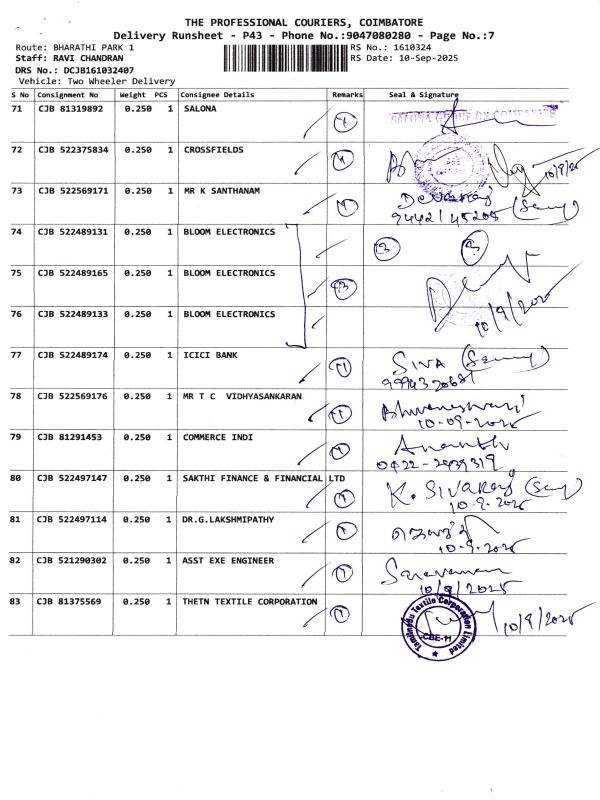 THE PROFESSIONAL COURIERS, COIMBATORE
Delivery Runsheet - P43 - Phone No.:9047080280 - Page No.:7
Route: BHARATHI PARK 1 RS No.: 1610324
Staff: RAVI CHANDRAN RS Date: 10-Sep-2025
DRS No.: DCJB161032407
Vehicle: Two Wheeler Delivery
S No Consignment No Weight PCS Consignee Details Remarks Seal & Signature
71 CJB 81319892 0.250 1 SALONA 1 SALONA GROUP OF COMPANIES
72 CJB 522375834 0.250 1 CROSSFIELDS 1 10/9/25
73 CJB 522569171 0.250 1 MR K SANTHANAM 1 Devaraj
9442145205
74 CJB 522489131 0.250 1 BLOOM ELECTRONICS
75 CJB 522489165 0.250 1 BLOOM ELECTRONICS 3
10/9/2025
76 CJB 522489133 0.250 1 BLOOM ELECTRONICS
77 CJB 522489174 0.250 1 ICICI BANK 1 SIVA
78 CJB 522569176 0.250 1 MR T C VIDHYASANKARAN 1 Bhuvaneswari
10-09-2025
79 CJB 81291453 0.250 1 COMMERCE INDI 1 Ananth
80 CJB 522497147 0.250 1 SAKTHI FINANCE & FINANCIAL LTD 1 K. SIVARAJ
10-9-2025
81 CJB 522497114 0.250 1 DR.G.LAKSHMIPATHY 1
10-9-2025
82 CJB 521290302 0.250 1 ASST EXE ENGINEER 1 Saravanan
10/9/2025
83 CJB 81375569 0.250 1 THETN TEXTILE CORPORATION 1 Tamilnadu Textile Corporation Limited CBE-11 10/9/2025